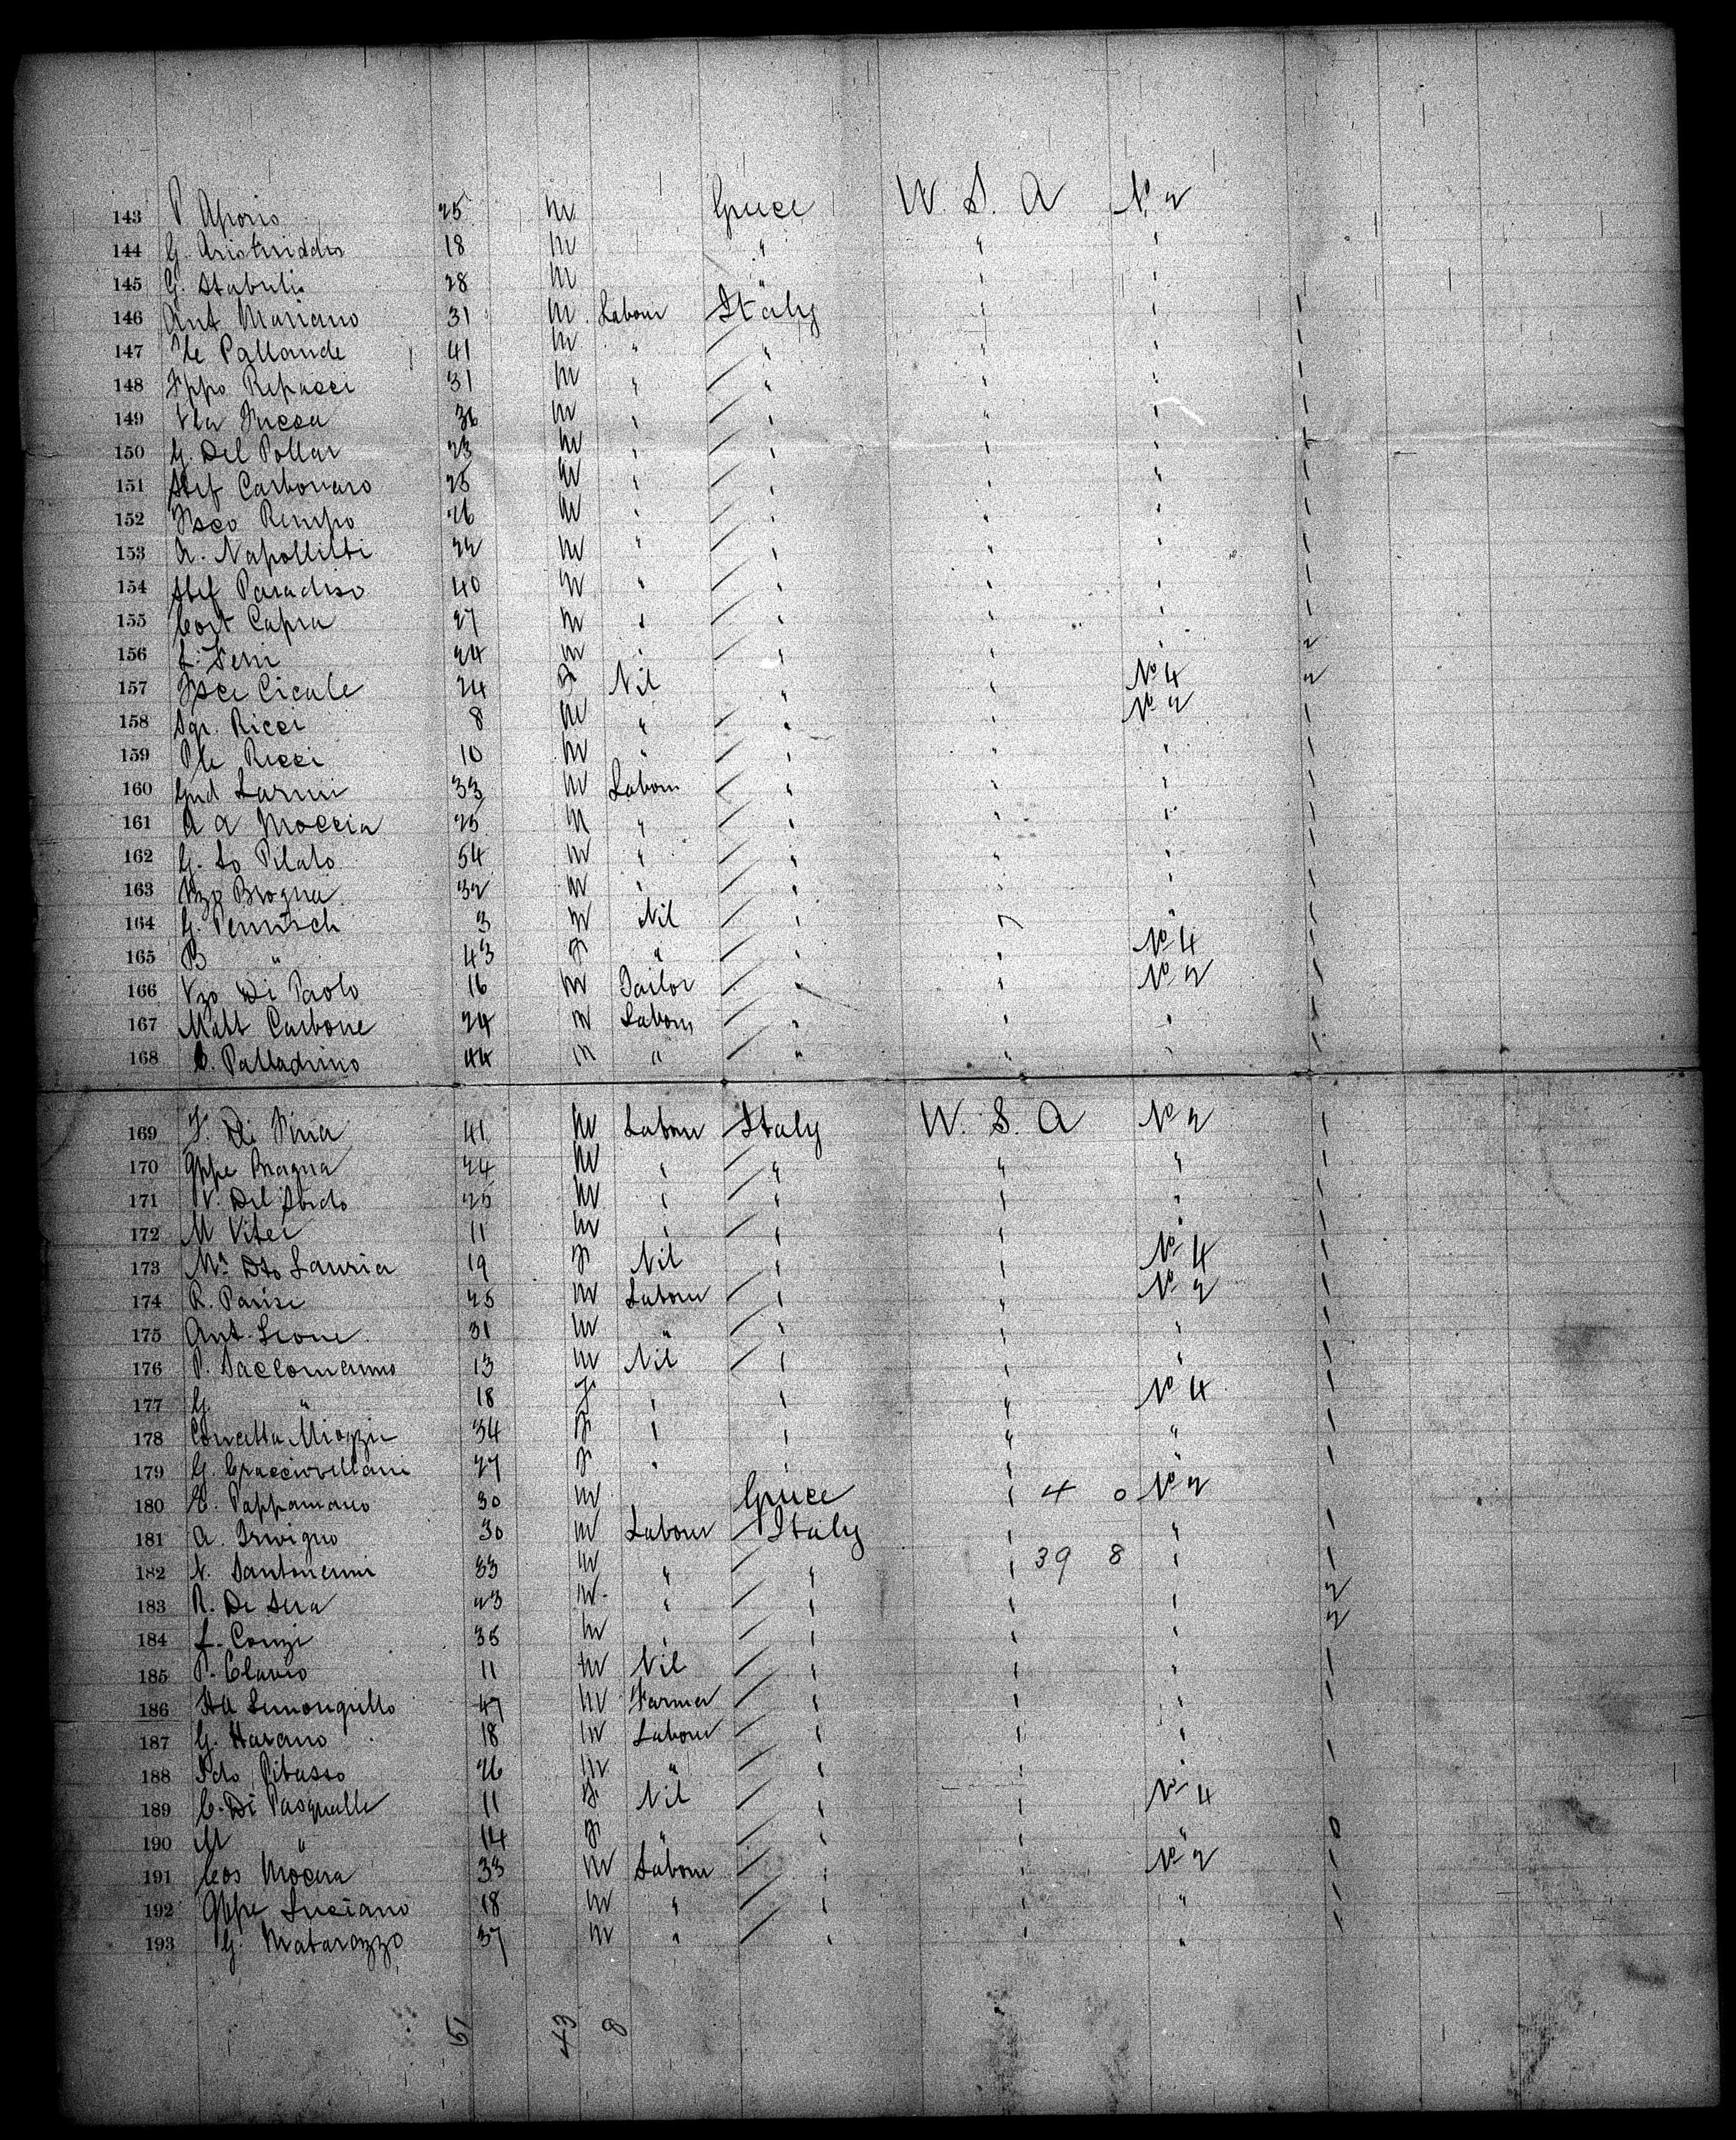 143 P Aporis 25 m Greece U. S. A No 2
144 G. Aristriddis 18 m " " "
145 G. Stabulis 28 m " " "
146 Ant Mariano 31 m Labour Italy " " 1
147 Ple Pallande 41 m " " " " 1
148 Fppo Repucci 31 m " " " " 1
149 Vta Fucca 36 m " " " " 1
150 G. Del Pollar 23 m " " " " 1
151 Stef Carbonaro 25 m " " " " 1
152 Fsco Rempo 26 m " " " " 1
153 A. Napollitti 22 m " " " " 1
154 Stef Paradiso 40 m " " " " 1
155 Cost Capra 27 m " " " " 1
156 L. Seni 24 m " " " " 2
157 Fsca Cicale 24 F Nil " " No 4 2
158 Sgr. Ricci 8 m " " " No 2 1
159 Ple Ricci 10 m " " " " 1
160 Gnd Larini 33 m Labour " " " 1
161 A a Moccia 25 m " " " " 1
162 G. Lo Pilato 54 m " " " " 1
163 Vzo Brogna 32 m " " " " 1
164 G. Pennisch 3 m Nil " " " 1
165 B " 43 F " " " No 4 1
166 Vzo Di Paolo 16 m Tailor " " No 2 1
167 Matt Carbone 24 m Labour " " " 1
168 C. Palladrino 44 m " " " " 1
169 F. Di Piria 41 m Labour Italy U. S. A No 2 1
170 Gppe Bragna 24 m " " " " 1
171 V. Del Sordo 25 m " " " " 1
172 M Vitei 11 m " " " " 1
173 Ma Dto Lauria 19 F Nil " " No 4 1
174 R. Parisi 25 m Labour " " No 2 1
175 Ant. Leone 31 m " " " " 1
176 P. Saccomanno 13 m Nil " " " 1
177 G. " 18 F " " " No 4 1
178 Concetta Miozzi 34 F " " " " 1
179 G. Cracciovellani 27 F " " " " 1
180 E. Pappamano 30 m Greece " 4 0 No 2
181 A. Trivigno 30 m Labour Italy " " 1
182 N. Santonenni 33 m " " " 39 8 " 1
183 R. De Sera 23 m " " " " 2
184 L. Conzi 35 m " " " " 2
185 P. Clavio 11 m Nil " " " 1
186 Sta Limongillo 47 m Farmer " " " 1
187 G. Marano 18 m Labour " " "
188 Fdo Pitasso 26 m " " " " 1
189 C. Di Pasqualle 11 F Nil " " No 4
190 M " 14 F " " " " 0
191 Cos Mocera 33 m Labour " " No 2 1
192 Gppe Luciano 18 m " " " " 1
193 G. Matarazzo 37 m " " " " 1
51 43 8